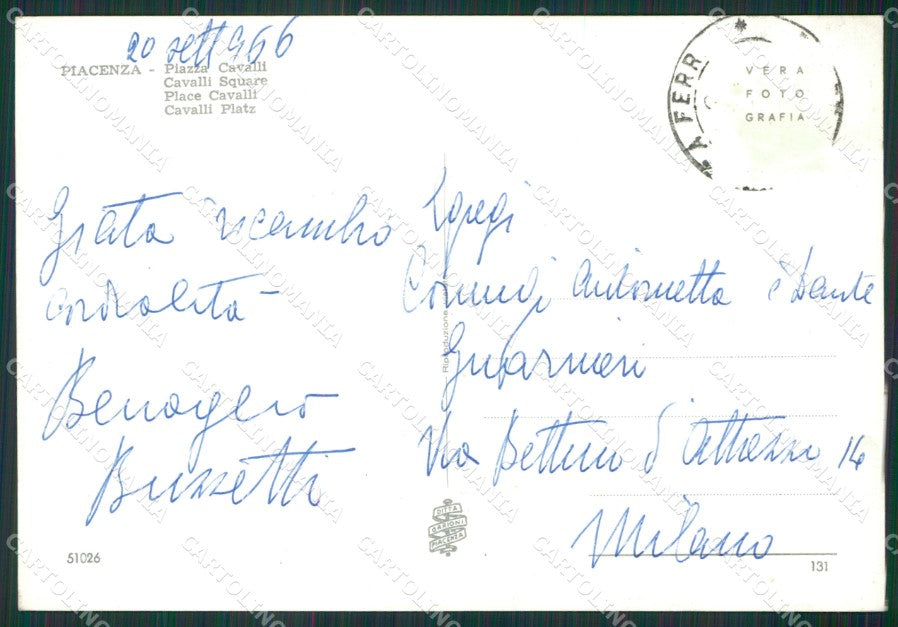 20 sett 966
PIACENZA - Piazza Cavalli
Cavalli Square
Place Cavalli
Cavalli Platz
A FERR
VERA
FOTO
GRAFIA
Grata ricambio
cordialità
Benagero
Buzzetti
Egregi
Coniugi Antonietta e Dante
Guarnieri
Via Bettino d'
14
Milano
Riproduzione
DITTA
GARIONI
PIACENZA
51026
131
CARTOLINOMANIA